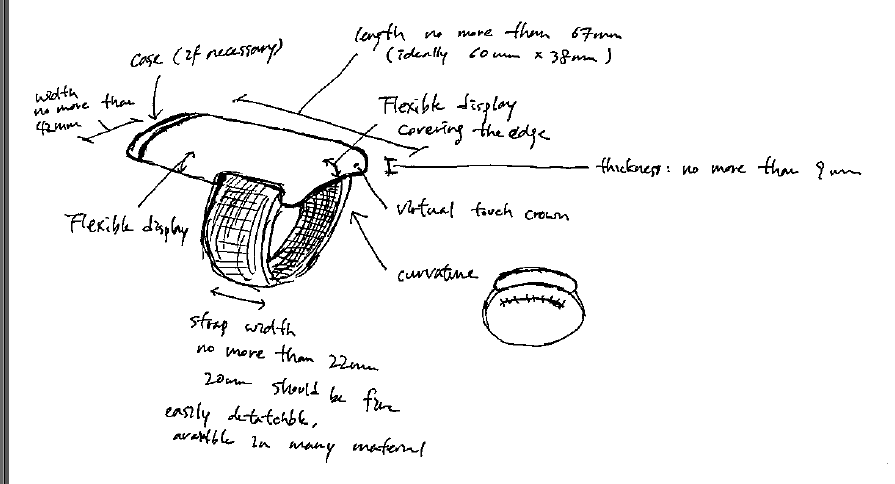 length no more than 67mm
(ideally 60mm × 38mm)
case (if necessary)
width
no more than
42mm
Flexible display
covering the edge
thickness: no more than 9mm
virtual touch crown
Flexible display
curvature
strap width
no more than 22mm
20mm should be fine
easily detatchble,
availble in many material